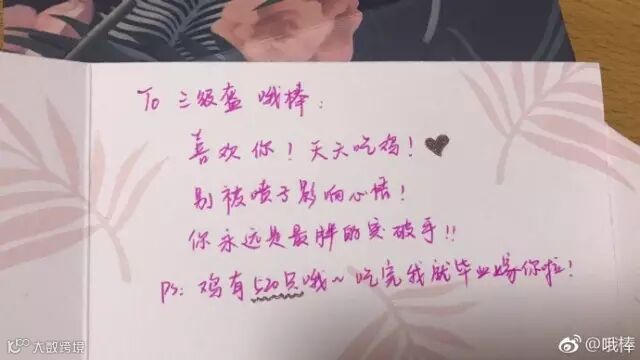 To 三级盔 哦棒:
喜欢你!天天吃鸡!
别被喷子影响心情!
你永远是最胖的突破手!!
Ps: 鸡有520只哦~吃完我就毕业嫁你啦!
大数跨境
@哦棒